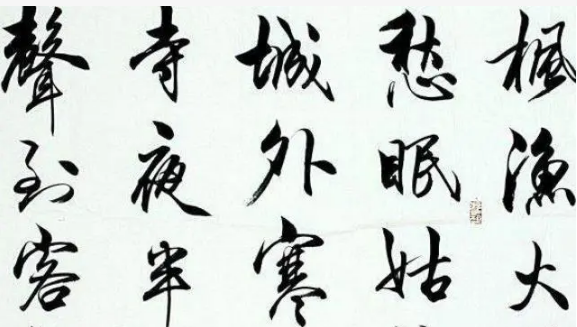 楓漁火
愁眠姑
城外寒
寺夜半
聲到客